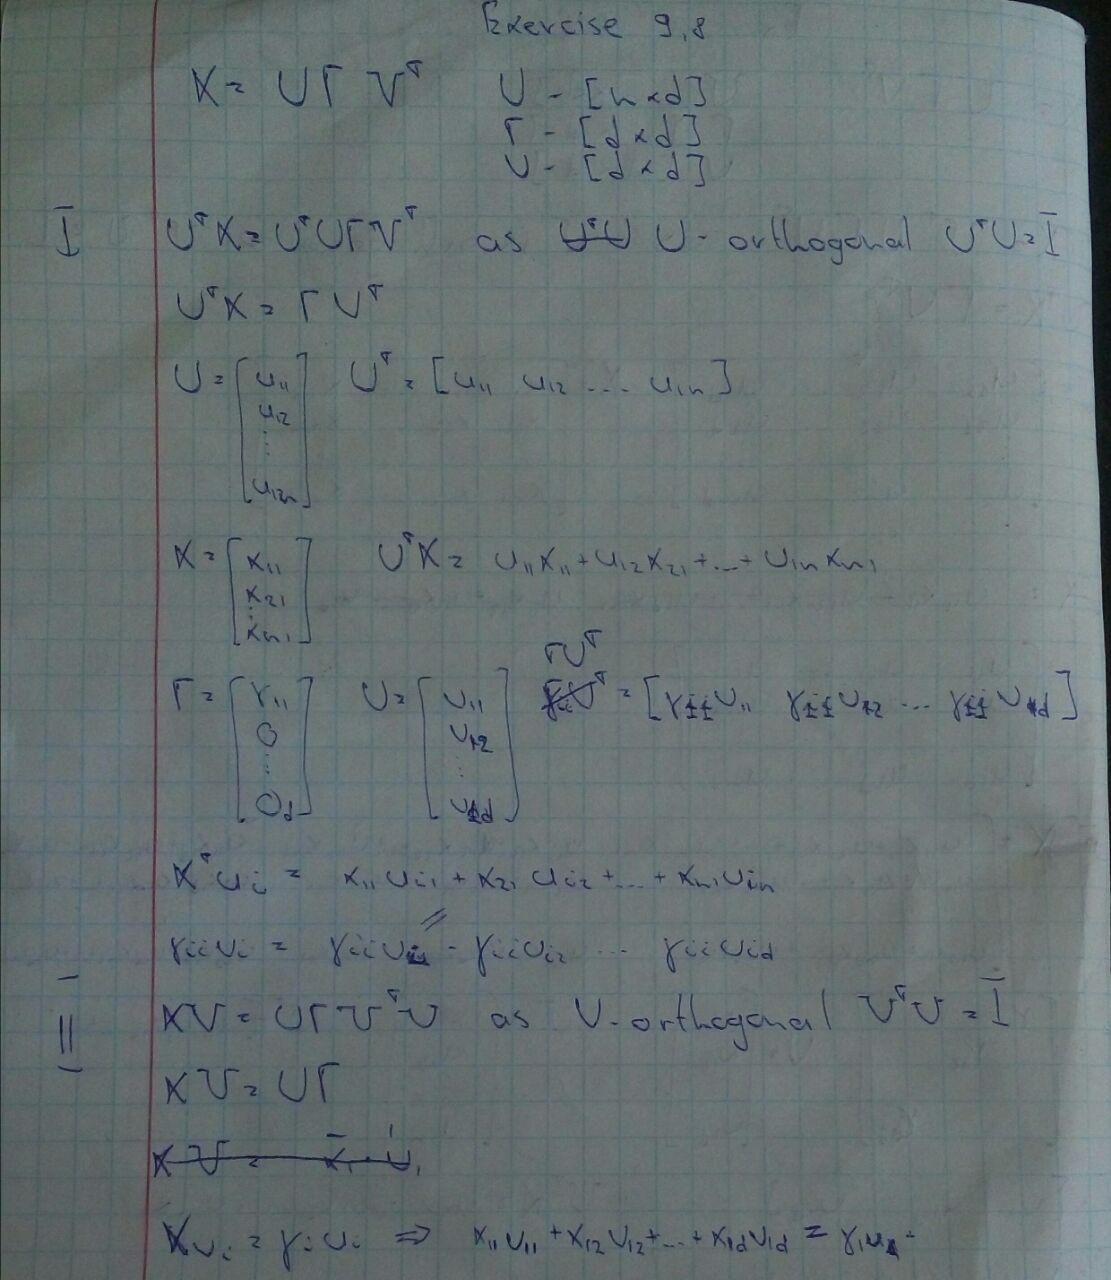 Exercise 9.8
X = UΓV^T U - [n×d]
Γ - [d×d]
V - [d×d]
I U^T X = U^T UΓV^T as U^T U U - orthogonal U^T U = I
U^T X = ΓV^T
U = [u11 u12 ... u1n] U^T = [u11 u12 ... u1n]
X = [x11 x21 : xn1] U^T X = u11 x11 + u12 x21 + ... + u1n xn1
Γ = [γ11 0 ... 0d] V = [v11 v12 ... v1d] ΓV^T = [γ11 v11 γ11 v12 ... γ11 v1d]
X^T ui = x11 ui1 + x21 ui2 + ... + xn1 uin
=
γii vi = γii vi1 - γii vi2 ... γii vid
II XV = UΓV^T V as V - orthogonal V^T V = I
XV = UΓ
X V =
X vi = γi ui ⇒ x11 v11 + x12 v12 + ... + x1d v1d = γ1 u1